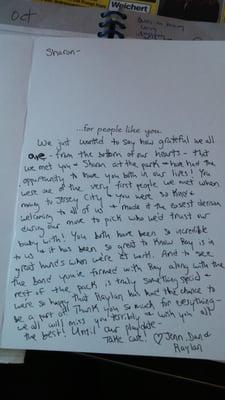 Oct
Weichert
Sharon-
...for people like you.
We just wanted to say how grateful we all
are - from the bottom of our hearts - that
we met you & Sharon at the park & have had the
opportunity to have you both in our lives! You
were one of the very first people we met when
moving to Jersey City & you were so kind &
welcoming to all of us & made it the easiest decision
during our move to pick who we'd trust our
baby with! You both have been so incredible
to us & it has been so great to know Ray is in
great hands when we're at work. And to see
the bond you've formed with Ray along with the
rest of the pack is truly something special &
were so happy that Raylan has had the chance to
be a part of! Thank you so much for everything -
we all will miss you terribly & wish you all
the best! Until our playdate -
Take care! ♡ Jenn, Dan &
Raylan